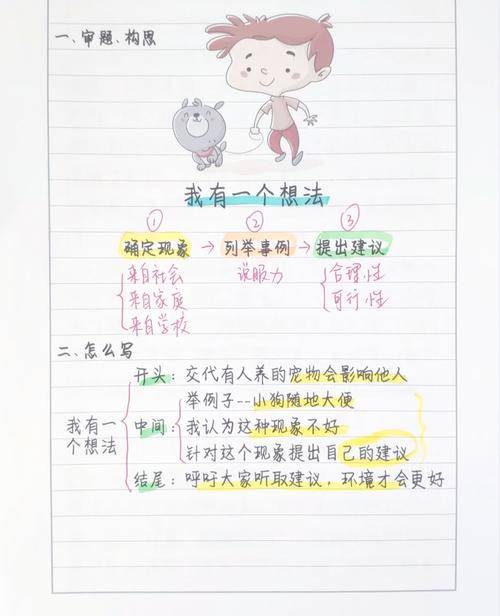 一、审题、构思
我有一个想法
① ② ③
确定现象 → 列举事例 → 提出建议
来自社会 说服力 合理性
来自家庭 可行性
来自学校
二、怎么写
开头：交代有人养的宠物会影响他人
举例子--小狗随地大便
我有一个想法
中间：我认为这种现象不好
针对这个现象提出自己的建议
结尾：呼吁大家听取建议，环境才会更好